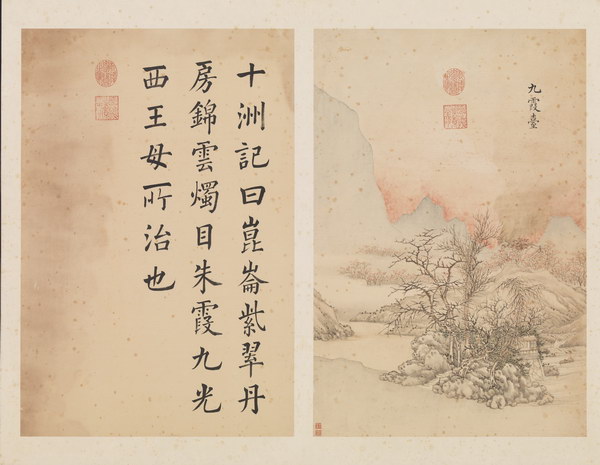 九霞臺
十洲記曰崑崙紫翠丹
房錦雲燭日朱霞九光
西王母所治也